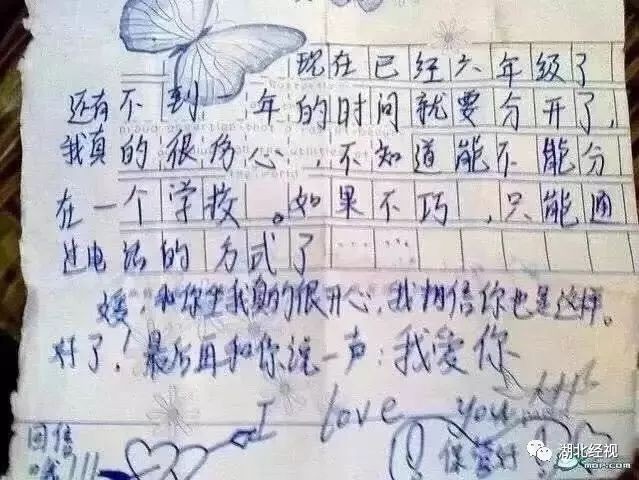 现在已经六年级了
还有不到 年的时间就要分开了，
我真的很伤心，不知道能不能分
在一个学校。如果不巧，只能通
过电话的方式了……
媛，和你坐我真的很开心，我相信你也是这样。
好了！最后再和你说一声：我爱你
I love you
回信
哦!!!
保管好
湖北经视
MOP.COM